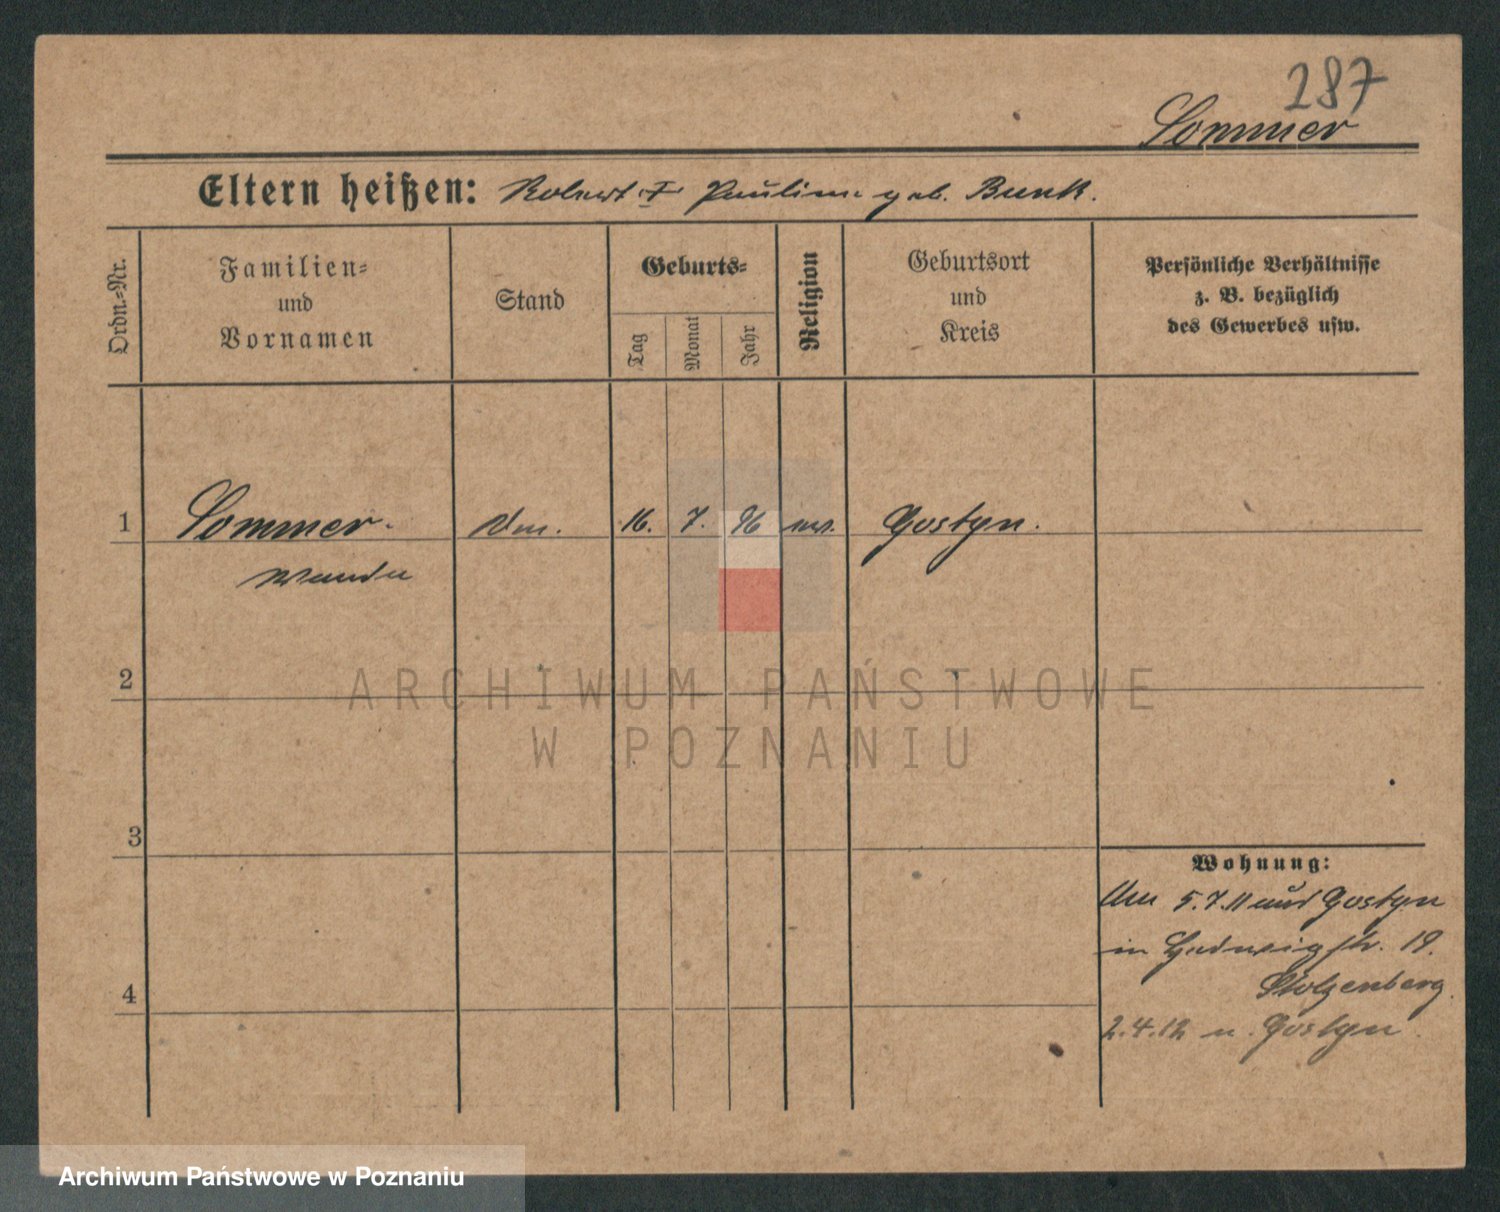 287
Sommer
Eltern heißen: Robert † Pauline geb. Bunk.
Ordn.-Nr.
Familien-
und
Vornamen
Stand
Geburts-
Tag
Monat
Jahr
Religion
Geburtsort
und
Kreis
Persönliche Verhältnisse
z. B. bezüglich
des Gewerbes usw.
1 Sommer. 16. 7. 96 Gostyn.
Wanda
2
ARCHIWUM PAŃSTWOWE
W POZNANIU
3
Wohnung:
5.7.11 Gostyn
in Hedwigstr. 19.
Stolzenberg.
4
2.4.12 n. Gostyn.
Archiwum Państwowe w Poznaniu